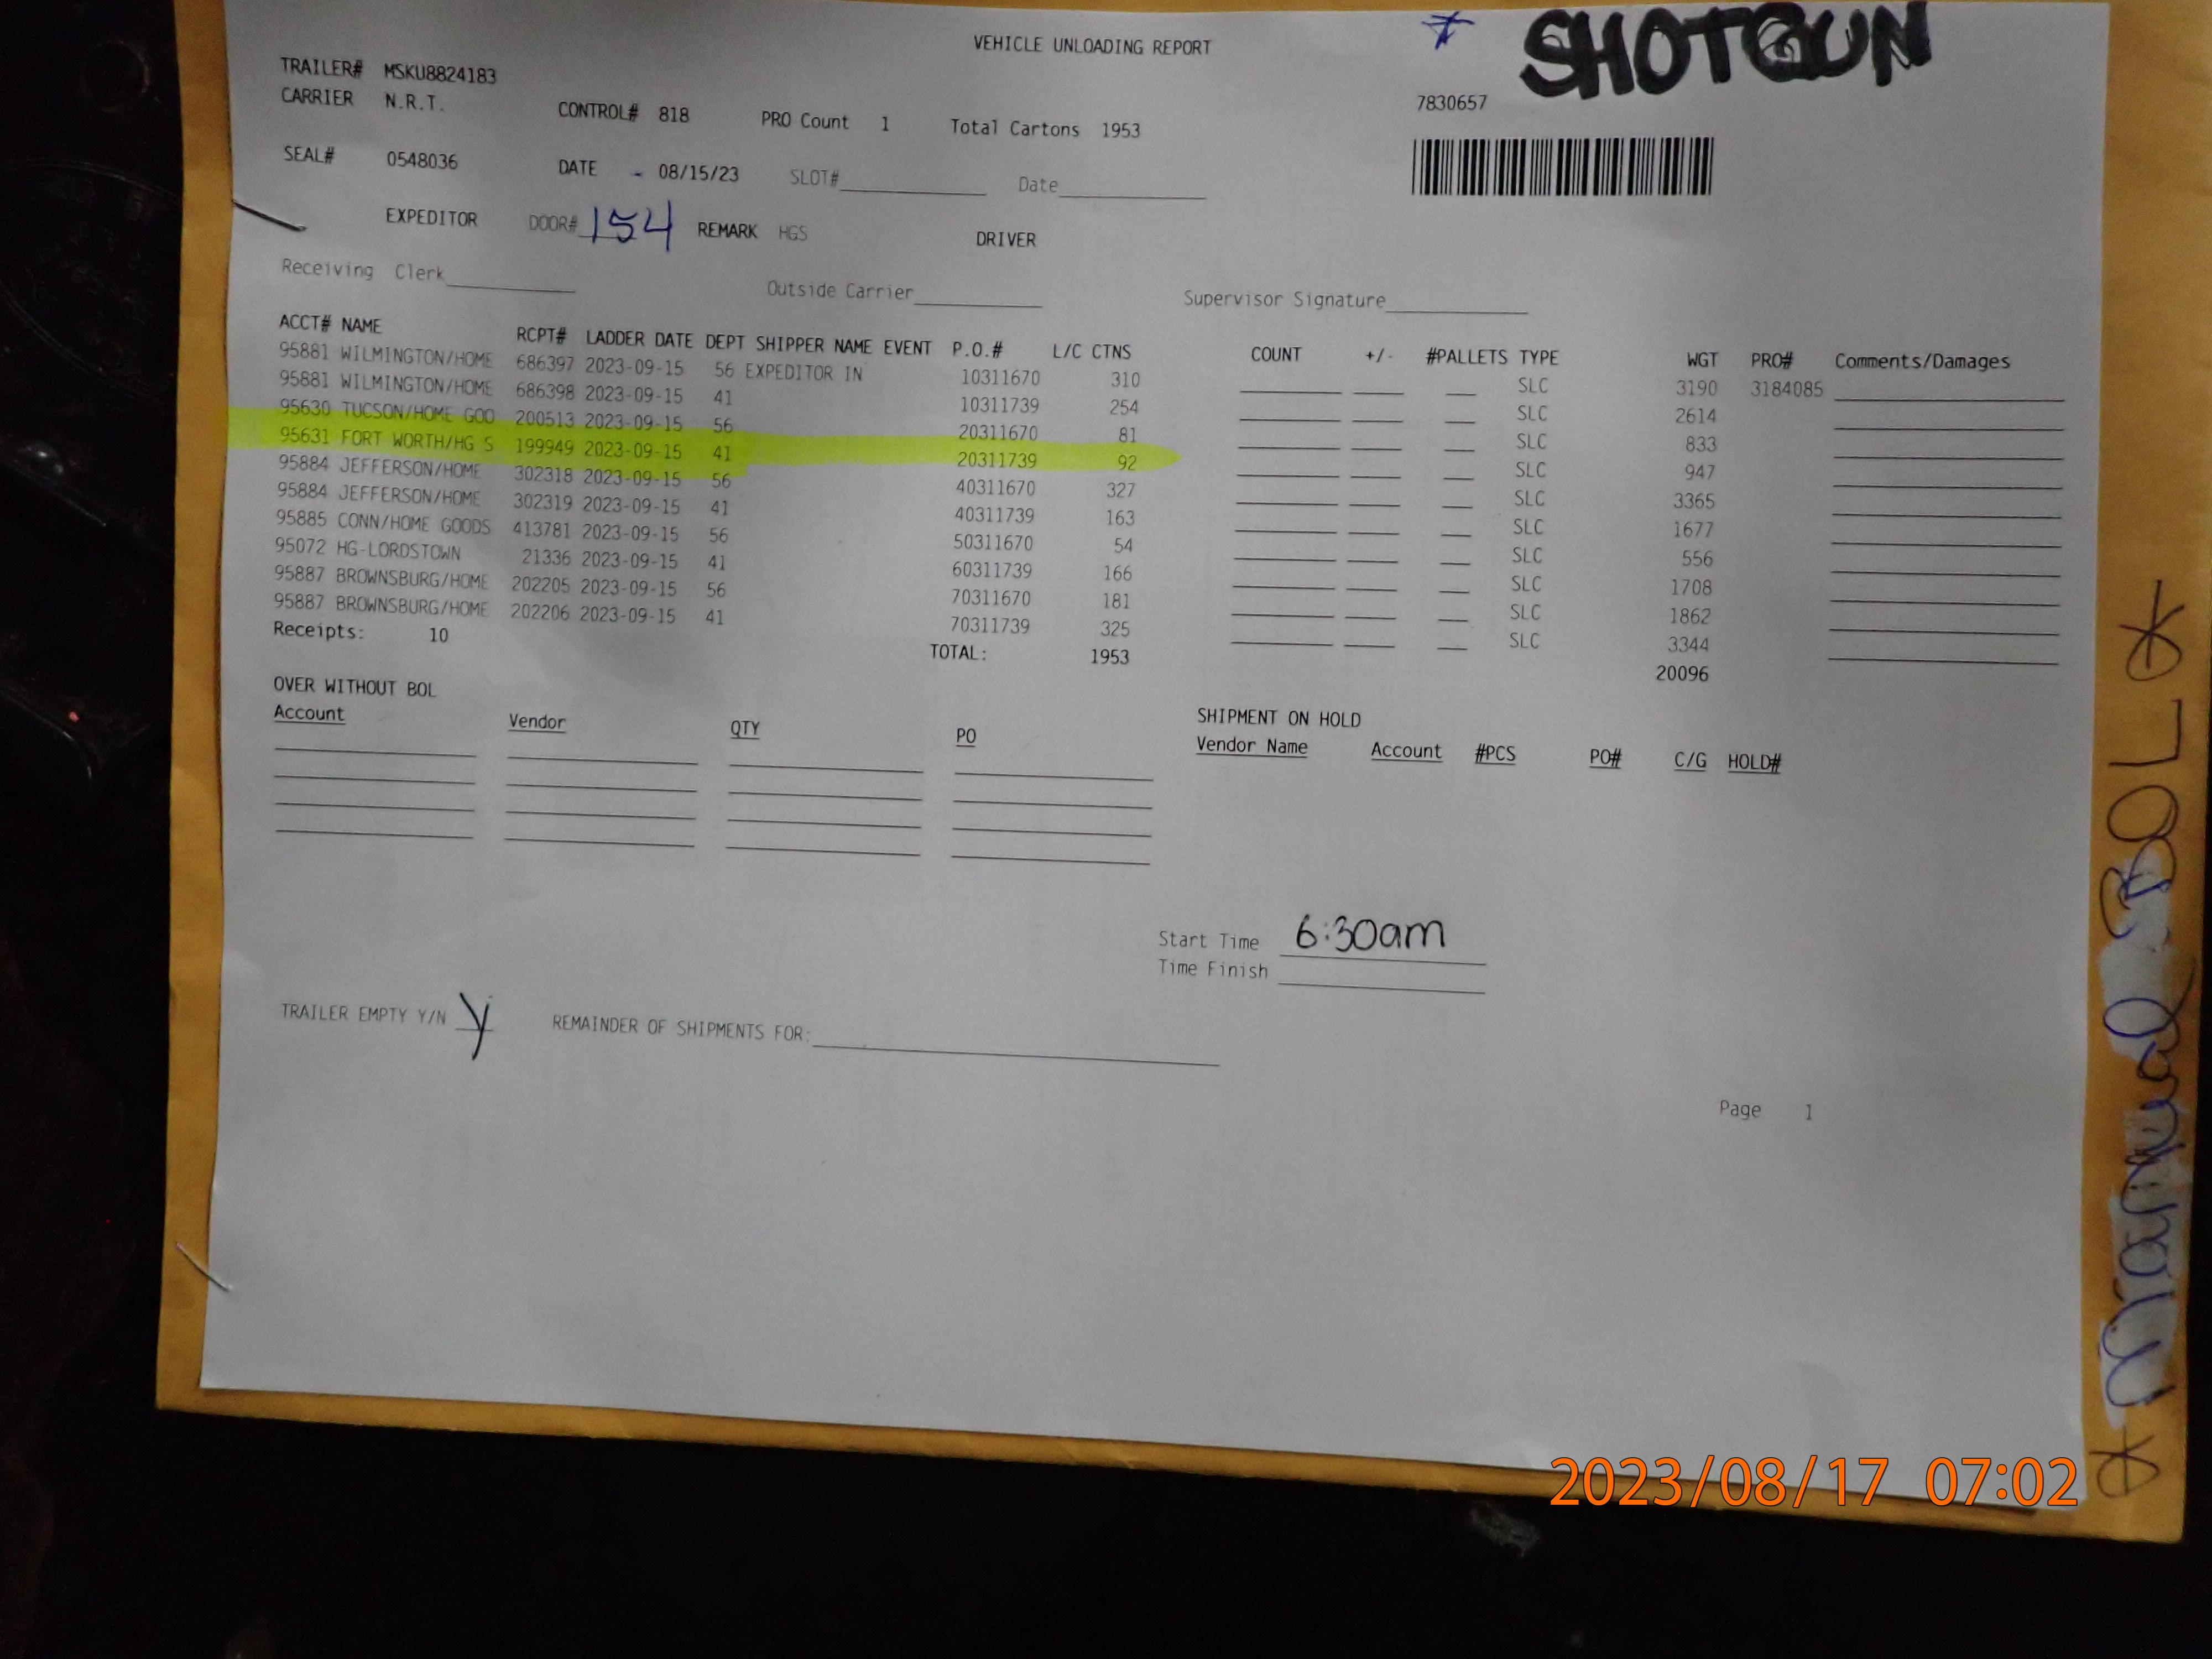 VEHICLE UNLOADING REPORT
* SHOTGUN
TRAILER# MSKU8824183
CARRIER N.R.T. CONTROL# 818 PRO Count 1 Total Cartons 1953
7830657
SEAL# 0548036 DATE - 08/15/23 SLOT# Date
EXPEDITOR DOOR# 154 REMARK HGS DRIVER
Receiving Clerk Outside Carrier Supervisor Signature
ACCT# NAME RCPT# LADDER DATE DEPT SHIPPER NAME EVENT P.O.# L/C CTNS COUNT +/- #PALLETS TYPE WGT PRO# Comments/Damages
95881 WILMINGTON/HOME 686397 2023-09-15 56 EXPEDITOR IN 10311670 310 SLC 3190 3184085
95881 WILMINGTON/HOME 686398 2023-09-15 41 10311739 254 SLC 2614
95630 TUCSON/HOME GOO 200513 2023-09-15 56 20311670 81 SLC 833
95631 FORT WORTH/HG S 199949 2023-09-15 41 20311739 92 SLC 947
95884 JEFFERSON/HOME 302318 2023-09-15 56 40311670 327 SLC 3365
95884 JEFFERSON/HOME 302319 2023-09-15 41 40311739 163 SLC 1677
95885 CONN/HOME GOODS 413781 2023-09-15 56 50311670 54 SLC 556
95072 HG-LORDSTOWN 21336 2023-09-15 41 60311739 166 SLC 1708
95887 BROWNSBURG/HOME 202205 2023-09-15 56 70311670 181 SLC 1862
95887 BROWNSBURG/HOME 202206 2023-09-15 41 70311739 325 SLC 3344
Receipts: 10 TOTAL: 1953 20096
OVER WITHOUT BOL
Account Vendor QTY PO
SHIPMENT ON HOLD
Vendor Name Account #PCS PO# C/G HOLD#
Start Time 6:30am
Time Finish
TRAILER EMPTY Y/N Y REMAINDER OF SHIPMENTS FOR:
Page 1
* Manual BOL *
2023/08/17 07:02